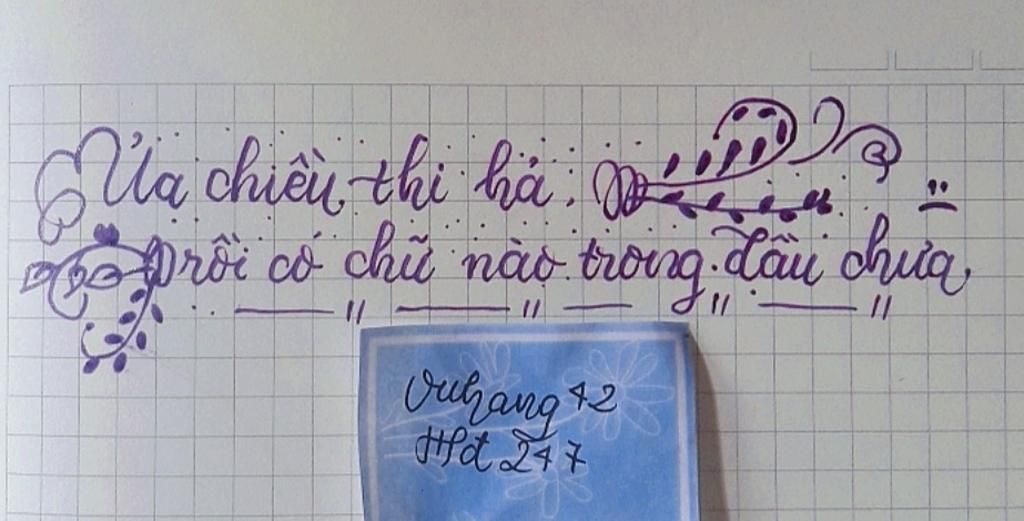 Ủa chiều thi hả.
rồi có chữ nào trong đầu chưa,
Vuhang 42
Hfđt 247